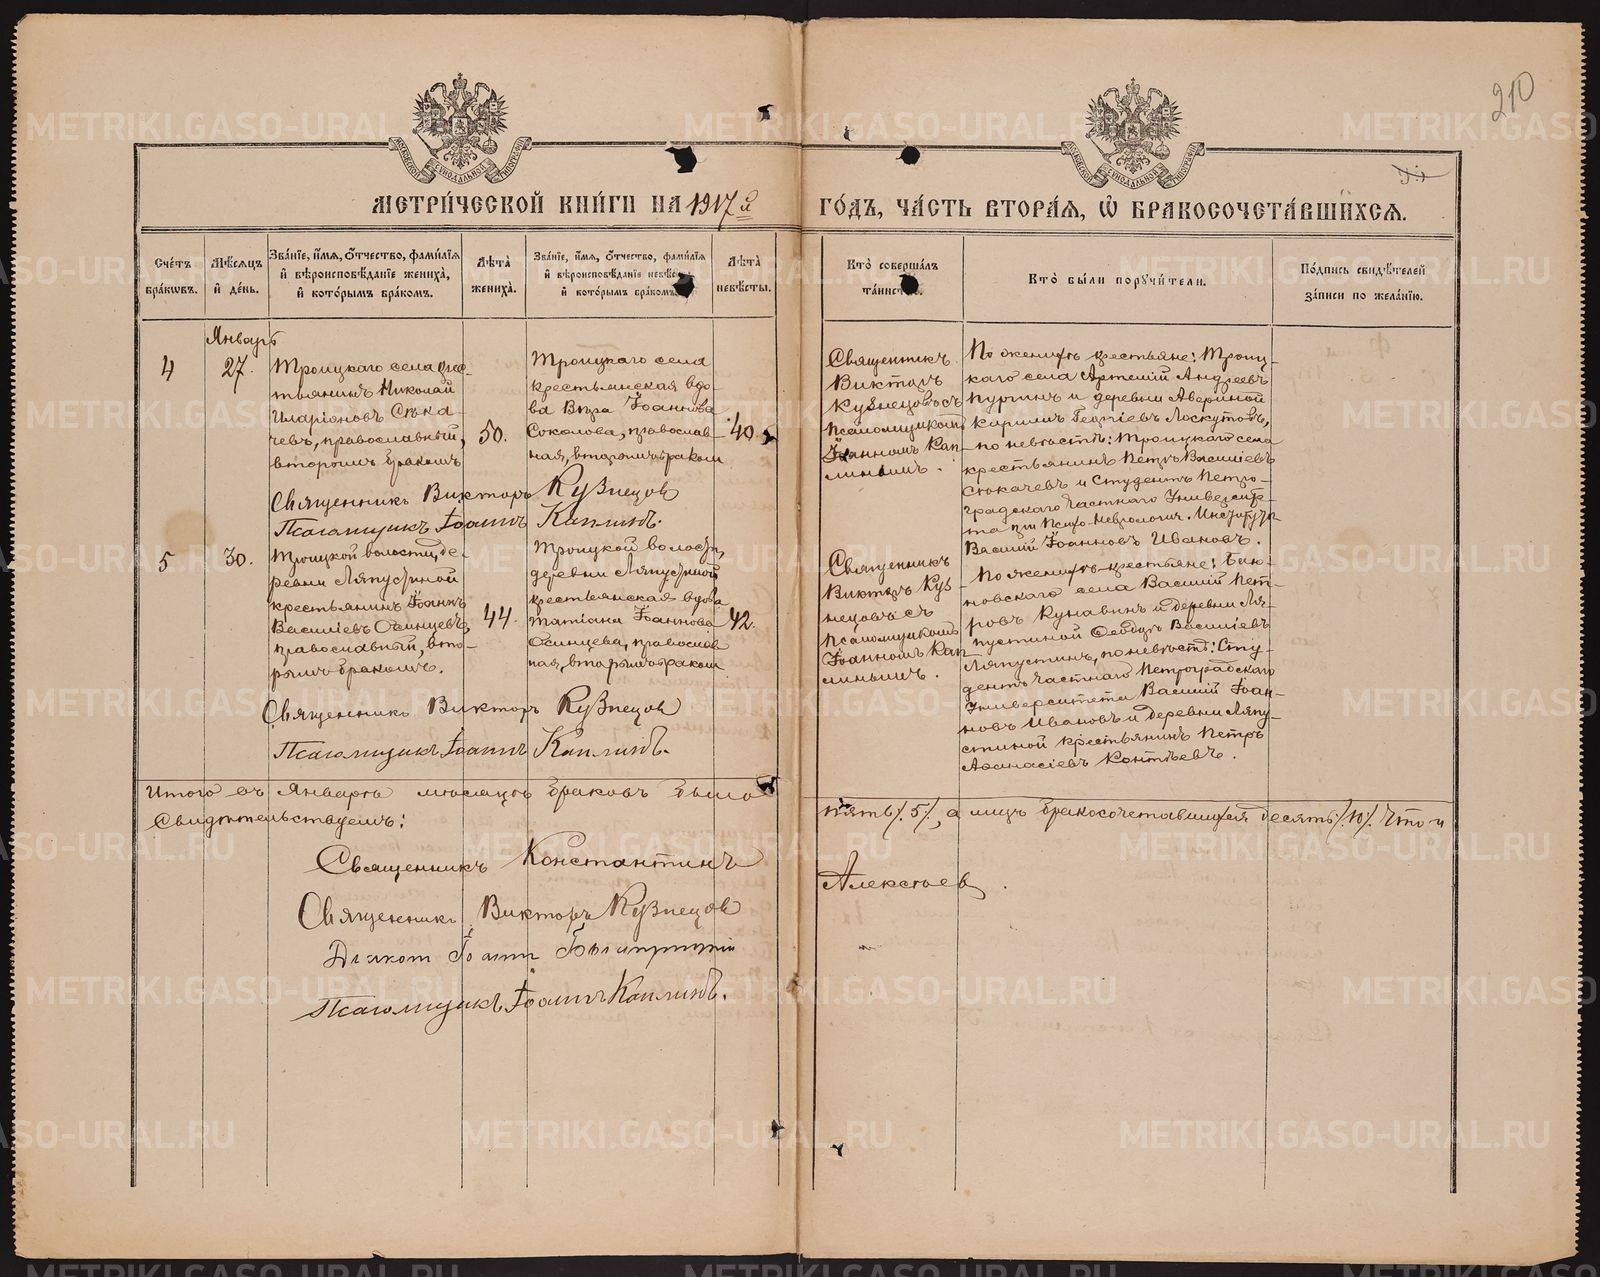 210
МЕТРИ́ЧЕСКОЙ КНИ́ГИ НА 1917й ГО́ДЪ, ЧА́СТЬ ВТОРА́Я, Ѽ БРАКОСОЧЕТА́ВШИХСЯ.
Сче́тъ бра́кѡвъ.
Мѣ́сяцъ и де́нь.
Зва́нїе, и́мя, ѻ́тчество, фами́лїя
и вѣроисповѣ́данїе жениха̀,
и кото́рымъ бра́комъ.
Лѣта̀ жениха̀.
Зва́нїе, и́мя, ѻ́тчество, фами́лїя
и вѣроисповѣ́данїе невѣ́сты
и кото́рымъ бра́комъ.
Лѣта̀ невѣ́сты.
Кто̀ соверша́лъ
та́инство.
Кто̀ бы́ли поручи́тели.
По́дпись свидѣ́телей
за́писи по жела́нїю.
Январь
4
27.
Троицкаго села крес-
тьянинъ Николай
Иларіоновъ Сѣка-
чевъ, православный,
вторымъ бракомъ
50.
Троицкаго села
крестьянская вдо-
ва Вѣра Іоаннова
Соколова, православ-
ная, вторымъ бракомъ
40
Священникъ
Викторъ
Кузнецовъ съ
псаломщикомъ
Іоанномъ Кап-
линымъ.
По женихѣ крестьяне: Троиц-
каго села Артемій Андреевъ
Пургинъ и деревни Авериной
Георгіевъ Лоскутовъ,
по невѣстѣ: Троицкаго села
крестьянинъ Петръ Василіевъ
Секачевъ и Студентъ Петро-
градскаго Частнаго Университе-
та при Психо-Неврологич. Института
Василій Іоанновъ Ивановъ.
Священникъ Викторъ Кузнецов
Псаломщикъ Іоаннъ Каплинъ.
5
30.
Троицкой волости, де-
ревни Ляпустиной
крестьянинъ Іоаннъ
Василіевъ Осинцевъ,
православный, вто-
рымъ бракомъ.
44.
Троицкой волости,
деревни Ляпустиной
крестьянская вдова
Татіана Іоаннова
Осинцева, православ
ная, вторымъ бракомъ
42.
Священникъ
Викторъ Куз
нецовъ съ
псаломщикомъ
Іоанномъ Кап
линымъ.
По женихѣ крестьяне:
новскаго села Василій Пет-
ровъ Кунавинъ и деревни Ля-
пустиной Ѳеодоръ Василіевъ
Ляпустинъ, по невѣстѣ: Сту-
дентъ Частнаго Петроградскаго
Университета Василій Іоан-
новъ Ивановъ и деревни Ляпу-
стиной крестьянинъ Петръ
Аѳанасіевъ Контѣевъ.
Священникъ Викторъ Кузнецов
Псаломщикъ Іоаннъ Каплинъ.
Итого въ Январѣ мѣсяцѣ браковъ было пять /. 5/., а лицъ бракосочетавшихся десять /. 10/. Что и
Свидѣтельствуемъ:
Священникъ Константинъ Алексѣев.
Священникъ Викторъ Кузнецов
Діакон Іоанн
Псаломщикъ Іоаннъ Каплинъ.
METRIKI.GASO-URAL.RU